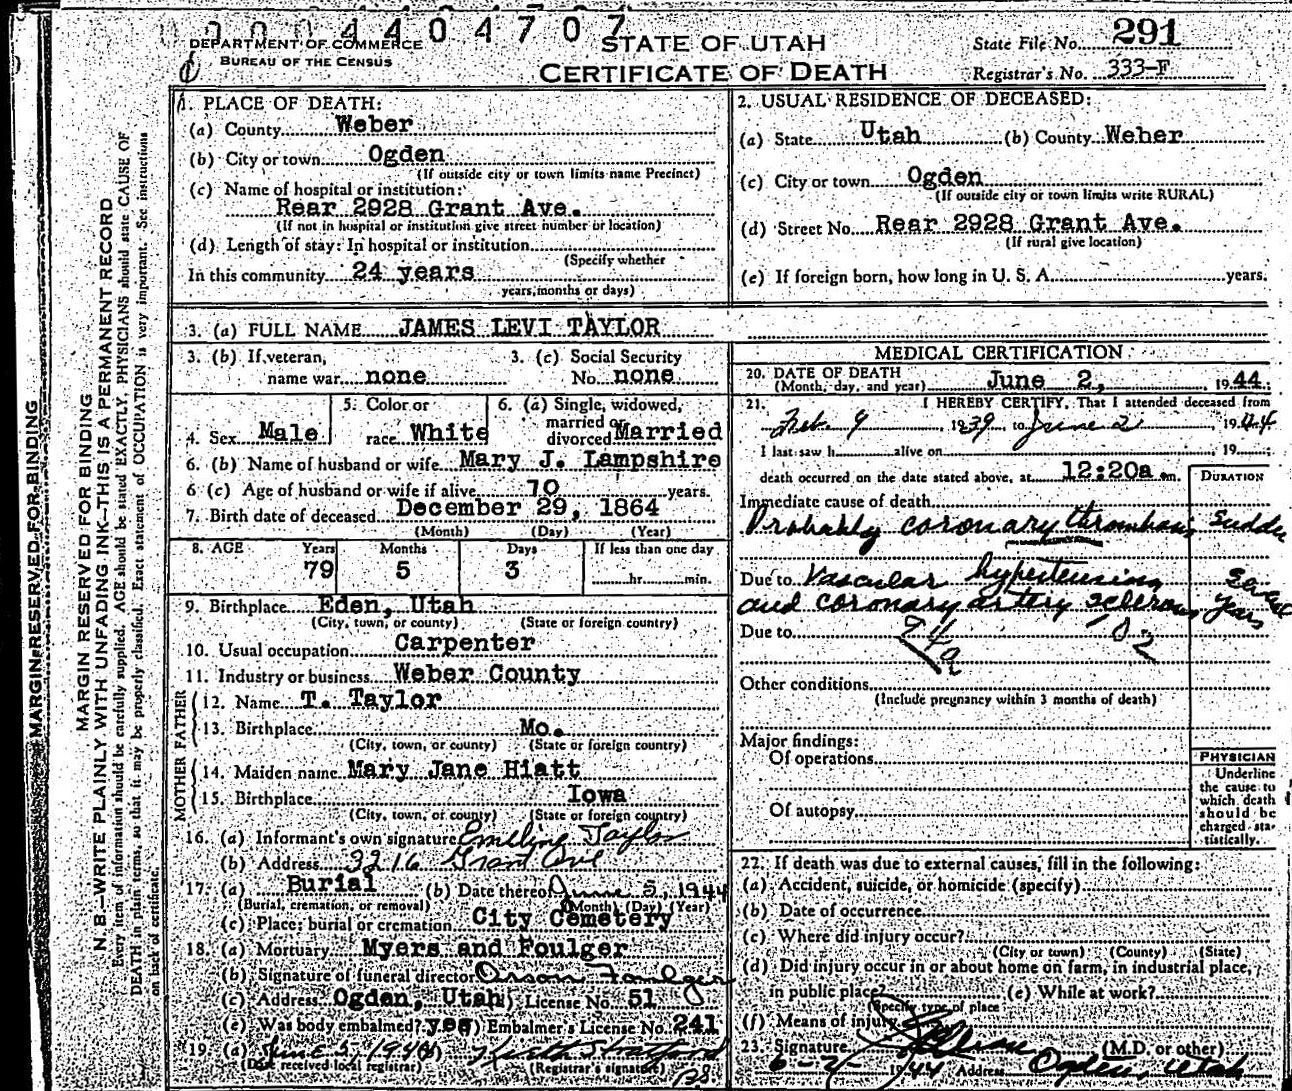 0 0 0 4 4 0 4 7 0 7
DEPARTMENT OF COMMERCE
BUREAU OF THE CENSUS
STATE OF UTAH
CERTIFICATE OF DEATH
State File No. 291
Registrar's No. 333-F
1. PLACE OF DEATH:
(a) County Weber
(b) City or town Ogden
(If outside city or town limits name Precinct)
(c) Name of hospital or institution:
Rear 2928 Grant Ave.
(If not in hospital or institution give street number or location)
(d) Length of stay: In hospital or institution
(Specify whether
In this community 24 years
years, months or days)
2. USUAL RESIDENCE OF DECEASED:
(a) State Utah (b) County Weber
(c) City or town Ogden
(If outside city or town limits write RURAL)
(d) Street No. Rear 2928 Grant Ave.
(If rural give location)
(e) If foreign born, how long in U. S. A. years.
3. (a) FULL NAME JAMES LEVI TAYLOR
3. (b) If veteran, name war none
3. (c) Social Security No. none
4. Sex Male
5. Color or race White
6. (a) Single, widowed, married or divorced Married
6. (b) Name of husband or wife Mary J. Lampshire
6 (c) Age of husband or wife if alive 70 years.
7. Birth date of deceased December 29, 1864
(Month) (Day) (Year)
8. AGE Years Months Days If less than one day
79 5 3 hr. min.
9. Birthplace Eden, Utah
(City, town, or county) (State or foreign country)
10. Usual occupation Carpenter
11. Industry or business Weber County
FATHER
12. Name T. Taylor
13. Birthplace Mo.
(City, town, or county) (State or foreign country)
MOTHER
14. Maiden name Mary Jane Hiatt
15. Birthplace Iowa
(City, town, or county) (State or foreign country)
16. (a) Informant's own signature Emeline Taylor
(b) Address 3216 Grant Ave
17. (a) Burial (b) Date thereof June 5, 1944
(Burial, cremation, or removal) (Month) (Day) (Year)
(c) Place; burial or cremation City Cemetery
18. (a) Mortuary Myers and Foulger
(b) Signature of funeral director Orson Foulger
(c) Address Ogden, Utah License No. 51
(e) Was body embalmed? yes Embalmer's License No. 241
19. (a) June 5, 1944
(Date received local registrar) (Registrar's signature)
MEDICAL CERTIFICATION
20. DATE OF DEATH
(Month, day, and year) June 2, 1944
21. I HEREBY CERTIFY, That I attended deceased from
Feb. 9, 1939 to June 2 1944
I last saw h alive on 19
death occurred on the date stated above, at 12:20a m.
DURATION
Immediate cause of death
Probably coronary thrombosis
Due to Vascular
and coronary artery sclerosis years
Due to
Other conditions
(Include pregnancy within 3 months of death)
Major findings:
Of operations
Of autopsy
PHYSICIAN
Underline
the cause to
which death
should be
charged sta-
tistically.
22. If death was due to external causes, fill in the following:
(a) Accident, suicide, or homicide (specify)
(b) Date of occurrence
(c) Where did injury occur?
(City or town) (County) (State)
(d) Did injury occur in or about home on farm, in industrial place,
in public place? (e) While at work?
(Specify type of place
(f) Means of injury
23. Signature (M.D. or other)
1944 Address Ogden, Utah
MARGIN RESERVED FOR BINDING
MARGIN RESERVED FOR BINDING
N. B.—WRITE PLAINLY WITH UNFADING INK—THIS IS A PERMANENT RECORD
Every item of information should be carefully supplied. AGE should be stated EXACTLY. PHYSICIANS should state CAUSE OF
DEATH in plain terms, so that it may be properly classified. Exact statement of OCCUPATION is very important. See instructions
on back of certificate.